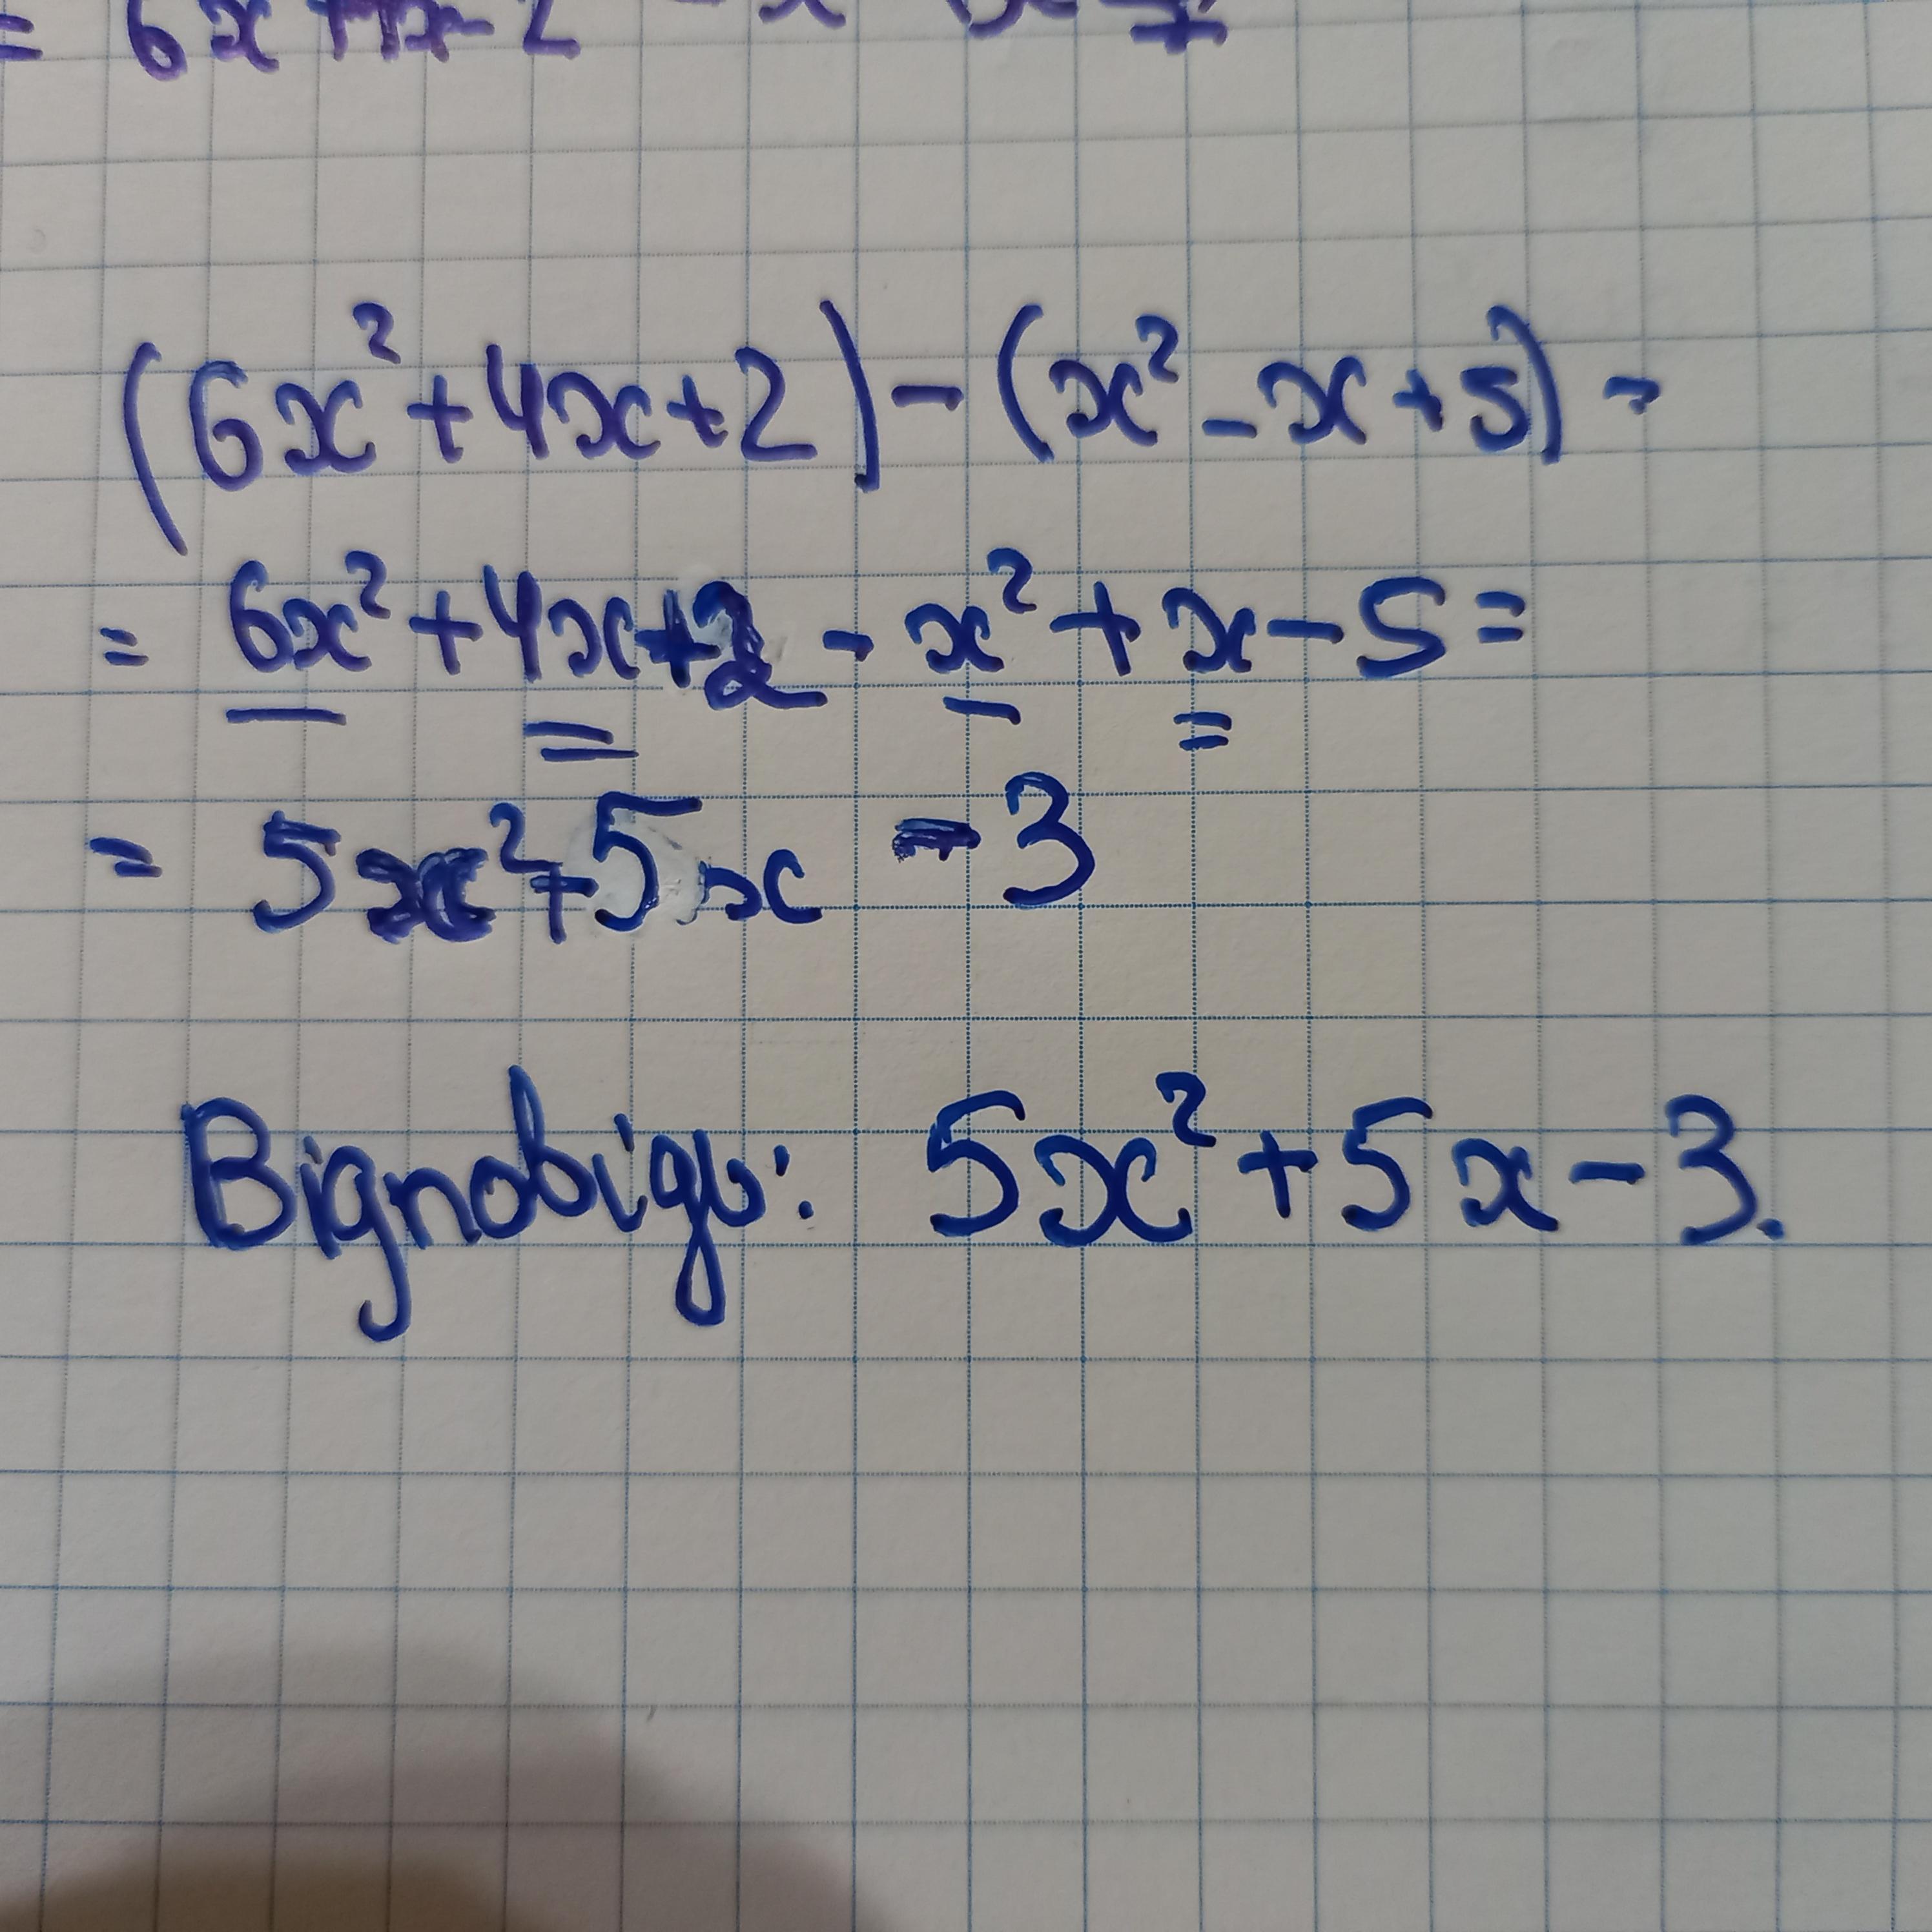 (6x² + 4x + 2) - (x² - x + 5) =
= 6x² + 4x + 2 - x² + x - 5 =
= 5x² + 5x - 3
Відповідь: 5x² + 5x - 3.